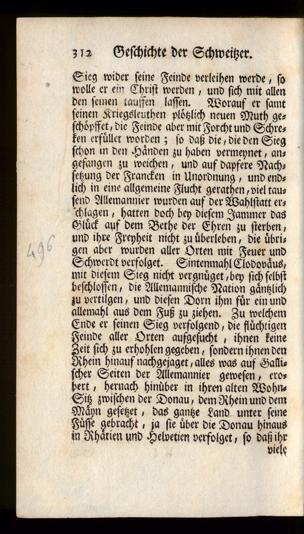 312 Geschichte der Schweitzer.
Sieg wider seine Feinde verleihen werde, so
wolle er ein Christ werden, und sich mit allen
den seinen tauffen lassen. Worauf er samt
seinen Kriegsleuthen plötzlich neuen Muth ge-
schöpffet, die Feinde aber mit Forcht und Schre-
ken erfüllet worden; so daß die, die den Sieg
schon in den Händen zu haben vermeynet, an-
gefangen zu weichen, und auf dapfere Nach-
setzung der Francken in Unordnung, und end-
lich in eine allgemeine Flucht gerathen, viel tau-
send Allemannier wurden auf der Wahlstatt er-
schlagen, hatten doch bey diesem Jammer das
Glück auf dem Bethe der Ehren zu sterben,
und ihre Freyheit nicht zu überleben, die übri-
gen aber wurden aller Orten mit Feuer und
Schwerdt verfolget. Sintenmahl Clodoväus,
mit diesem Sieg nicht vergnüget, bey sich selbst
beschlossen, die Allemannische Nation gäntzlich
zu vertilgen, und diesen Dorn ihm für ein und
allemahl aus dem Fuß zu ziehen. Zu welchem
Ende er seinen Sieg verfolgend, die flüchtigen
Feinde aller Orten aufgesucht, ihnen keine
Zeit sich zu erhohlen gegeben, sondern ihnen den
Rhein hinauf nachgejaget, alles was auf Galli-
scher Seiten der Allemannier gewesen, ero-
bert, hernach hinüber in ihren alten Wohn-
Sitz zwischen der Donau, dem Rhein und dem
Mäyn gesetzet, das gantze Land unter seine
Füsse gebracht, ja sie über die Donau hinaus
in Rhätien und Helvetien verfolget, so daß ihr
viele
496